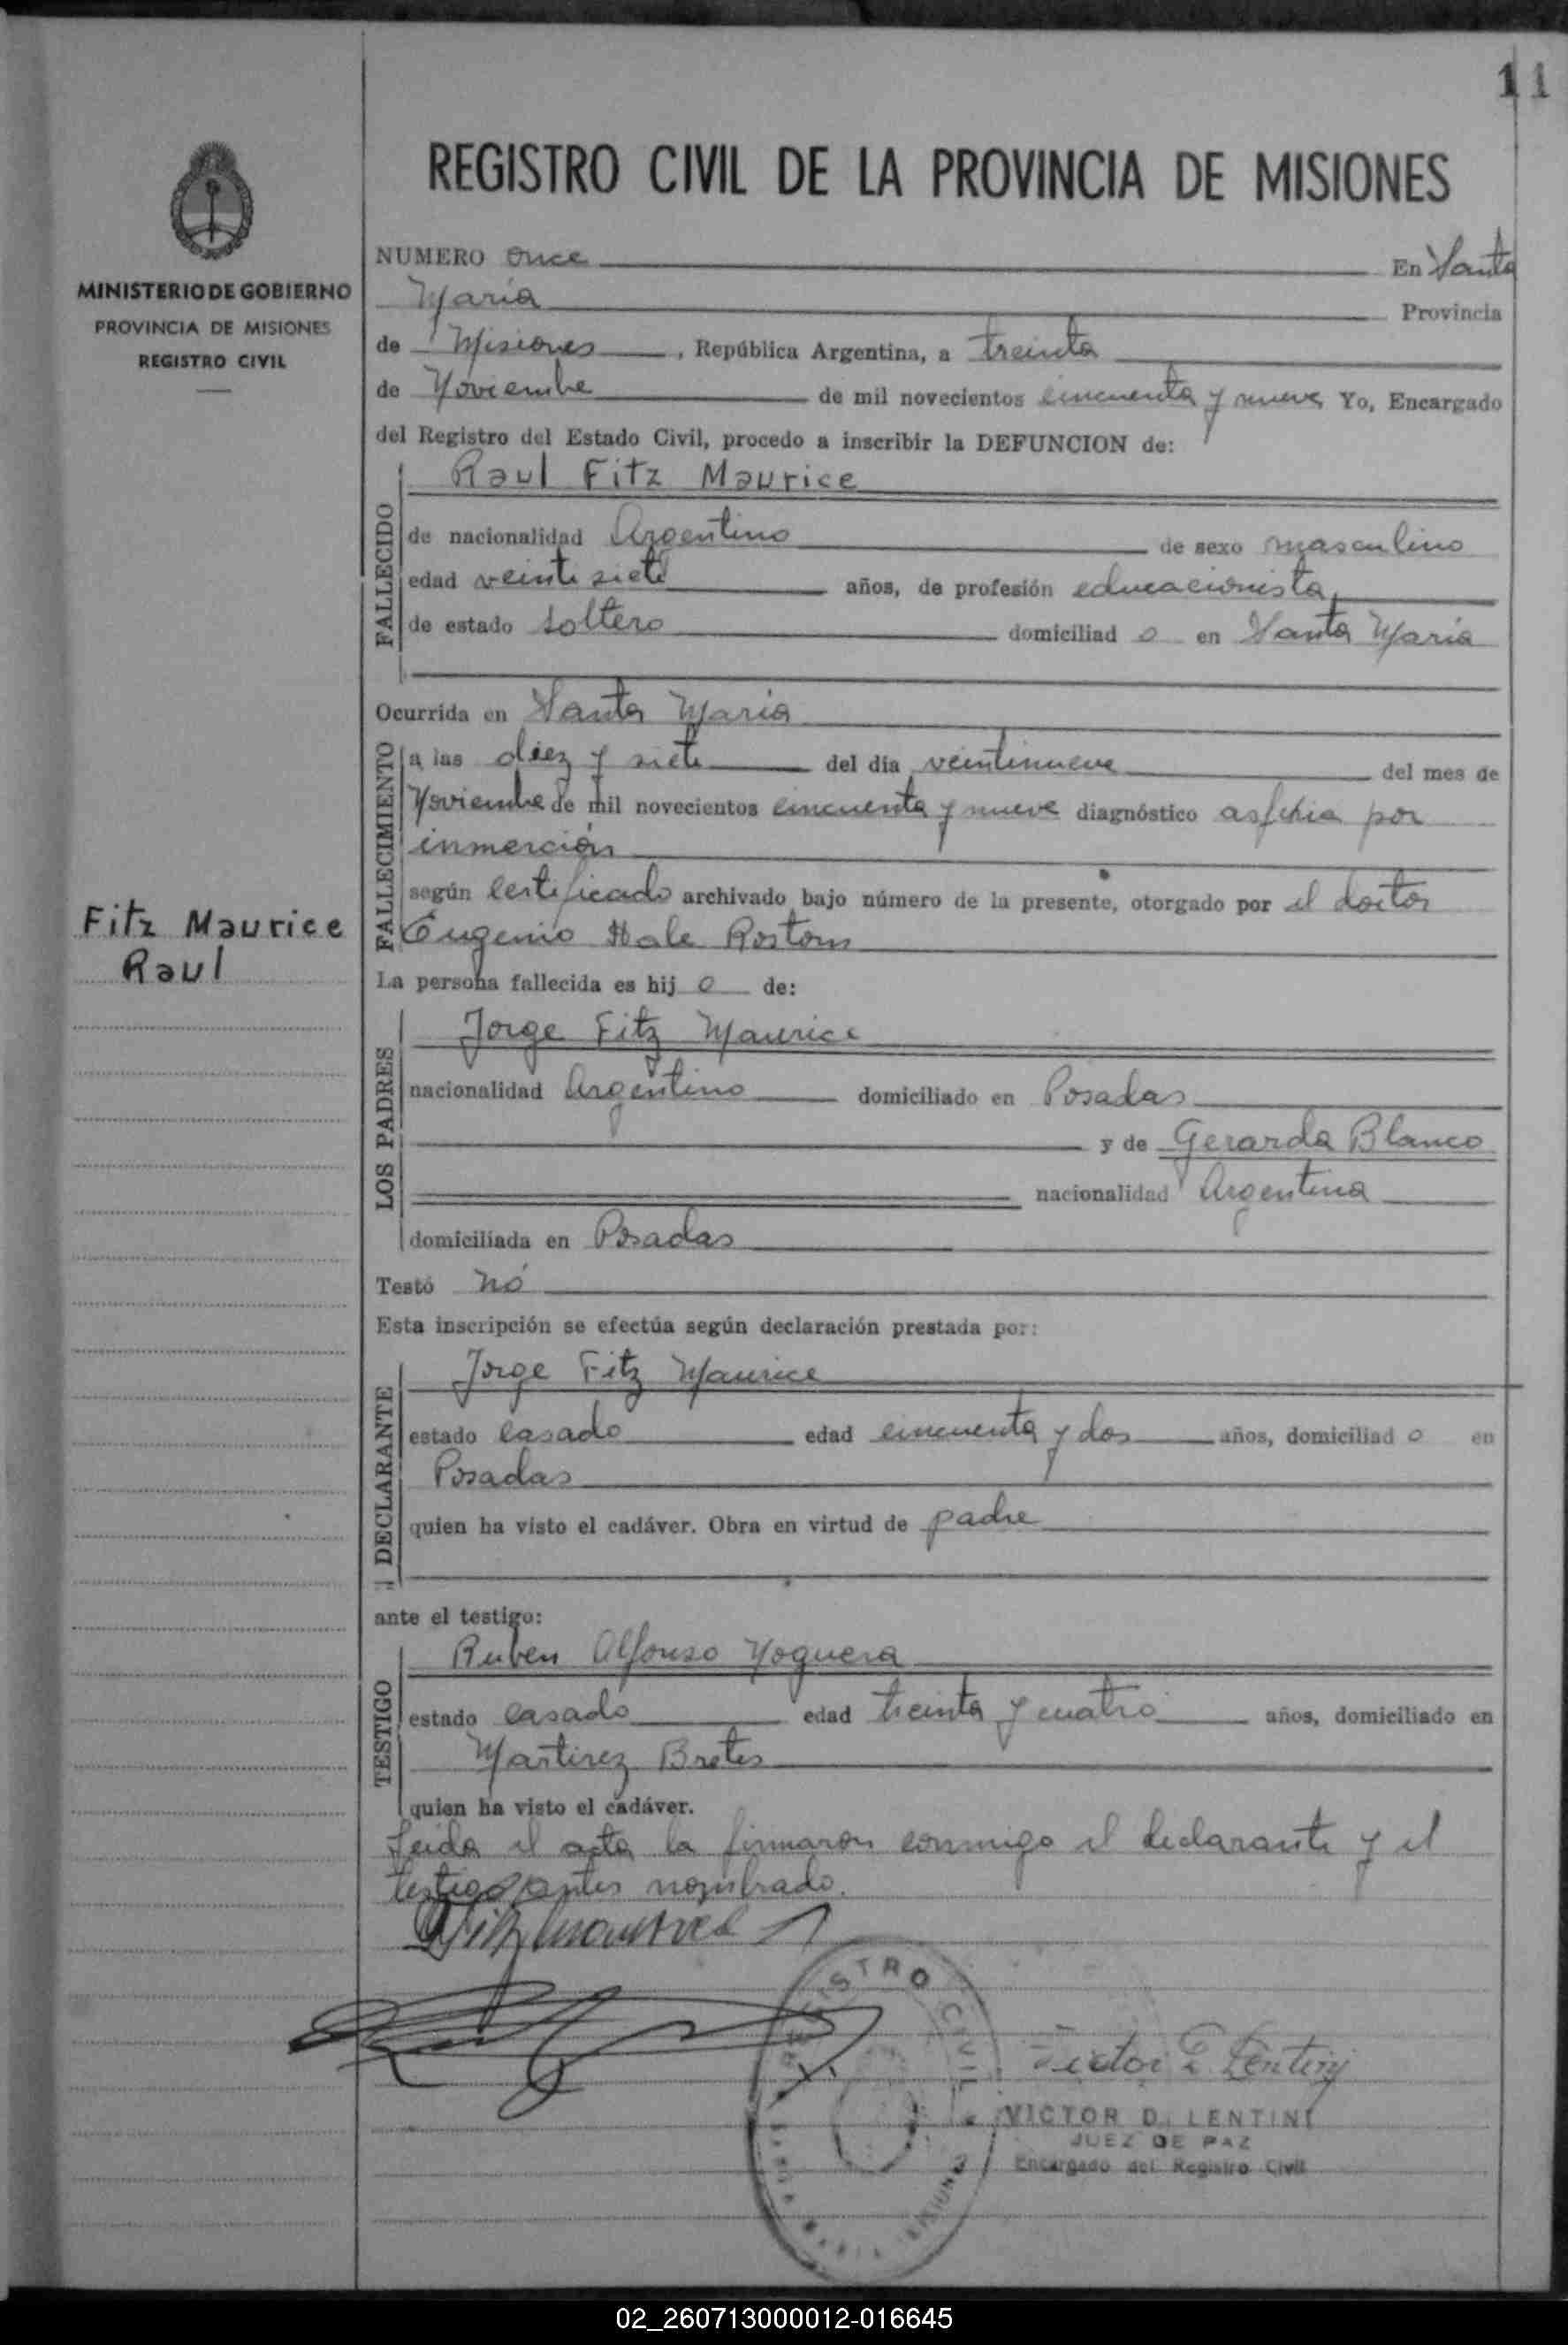 11
REGISTRO CIVIL DE LA PROVINCIA DE MISIONES
MINISTERIO DE GOBIERNO
PROVINCIA DE MISIONES
REGISTRO CIVIL
NUMERO once En Santa
María Provincia
de Misiones, República Argentina, a treinta
de Noviembre de mil novecientos cincuenta y nueve Yo, Encargado
del Registro del Estado Civil, procedo a inscribir la DEFUNCION de:
FALLECIDO
Raul Fitz Maurice
de nacionalidad Argentino de sexo masculino
edad veinte siete años, de profesión educacionista
de estado soltero domiciliad o en Santa María
Ocurrida en Santa María
FALLECIMIENTO
a las diez y siete del día veintinueve del mes de
Noviembre de mil novecientos cincuenta y nueve diagnóstico asficia por
inmerción
según certificado archivado bajo número de la presente, otorgado por el doctor
Eugenio Hale
Fitz Maurice
Raul
La persona fallecida es hij o de:
LOS PADRES
Jorge Fitz Maurice
nacionalidad Argentino domiciliado en Posadas
y de Gerarda Blanco
nacionalidad Argentina
domiciliada en Posadas
Testó nó
Esta inscripción se efectúa según declaración prestada por:
DECLARANTE
Jorge Fitz Maurice
estado casado edad cincuenta y dos años, domiciliad o en
Posadas
quien ha visto el cadáver. Obra en virtud de padre
ante el testigo:
TESTIGO
Ruben Alfonso Noguera
estado casado edad treinta y cuatro años, domiciliado en
Martirez Bretes
quien ha visto el cadáver.
Leida el acta la firmaron conmigo el declarante y el
testigo antes nombrado.
REGISTRO CIVIL
SANTA MARIA MISIONES
Victor Lentini
VICTOR D. LENTINI
JUEZ DE PAZ
Encargado del Registro Civil
02_260713000012-016645